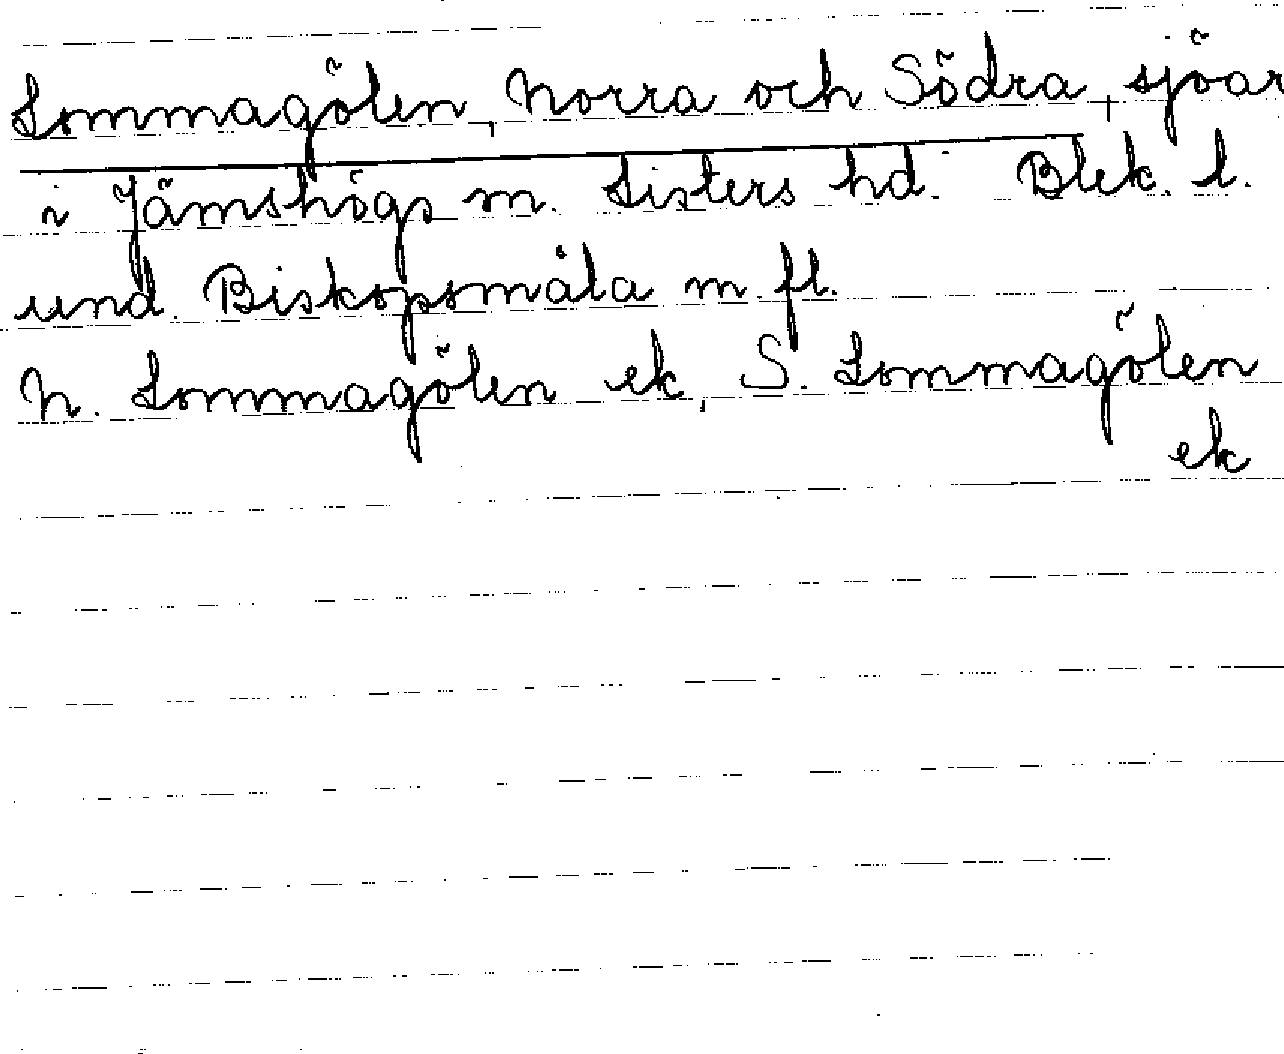 Lommagölen, Norra och Södra, sjöar
i Jämshögs m. Listers hd. Blek. l.
und. Biskopsmåla m. fl.
N. Lommagölen ek, S. Lommagölen
ek